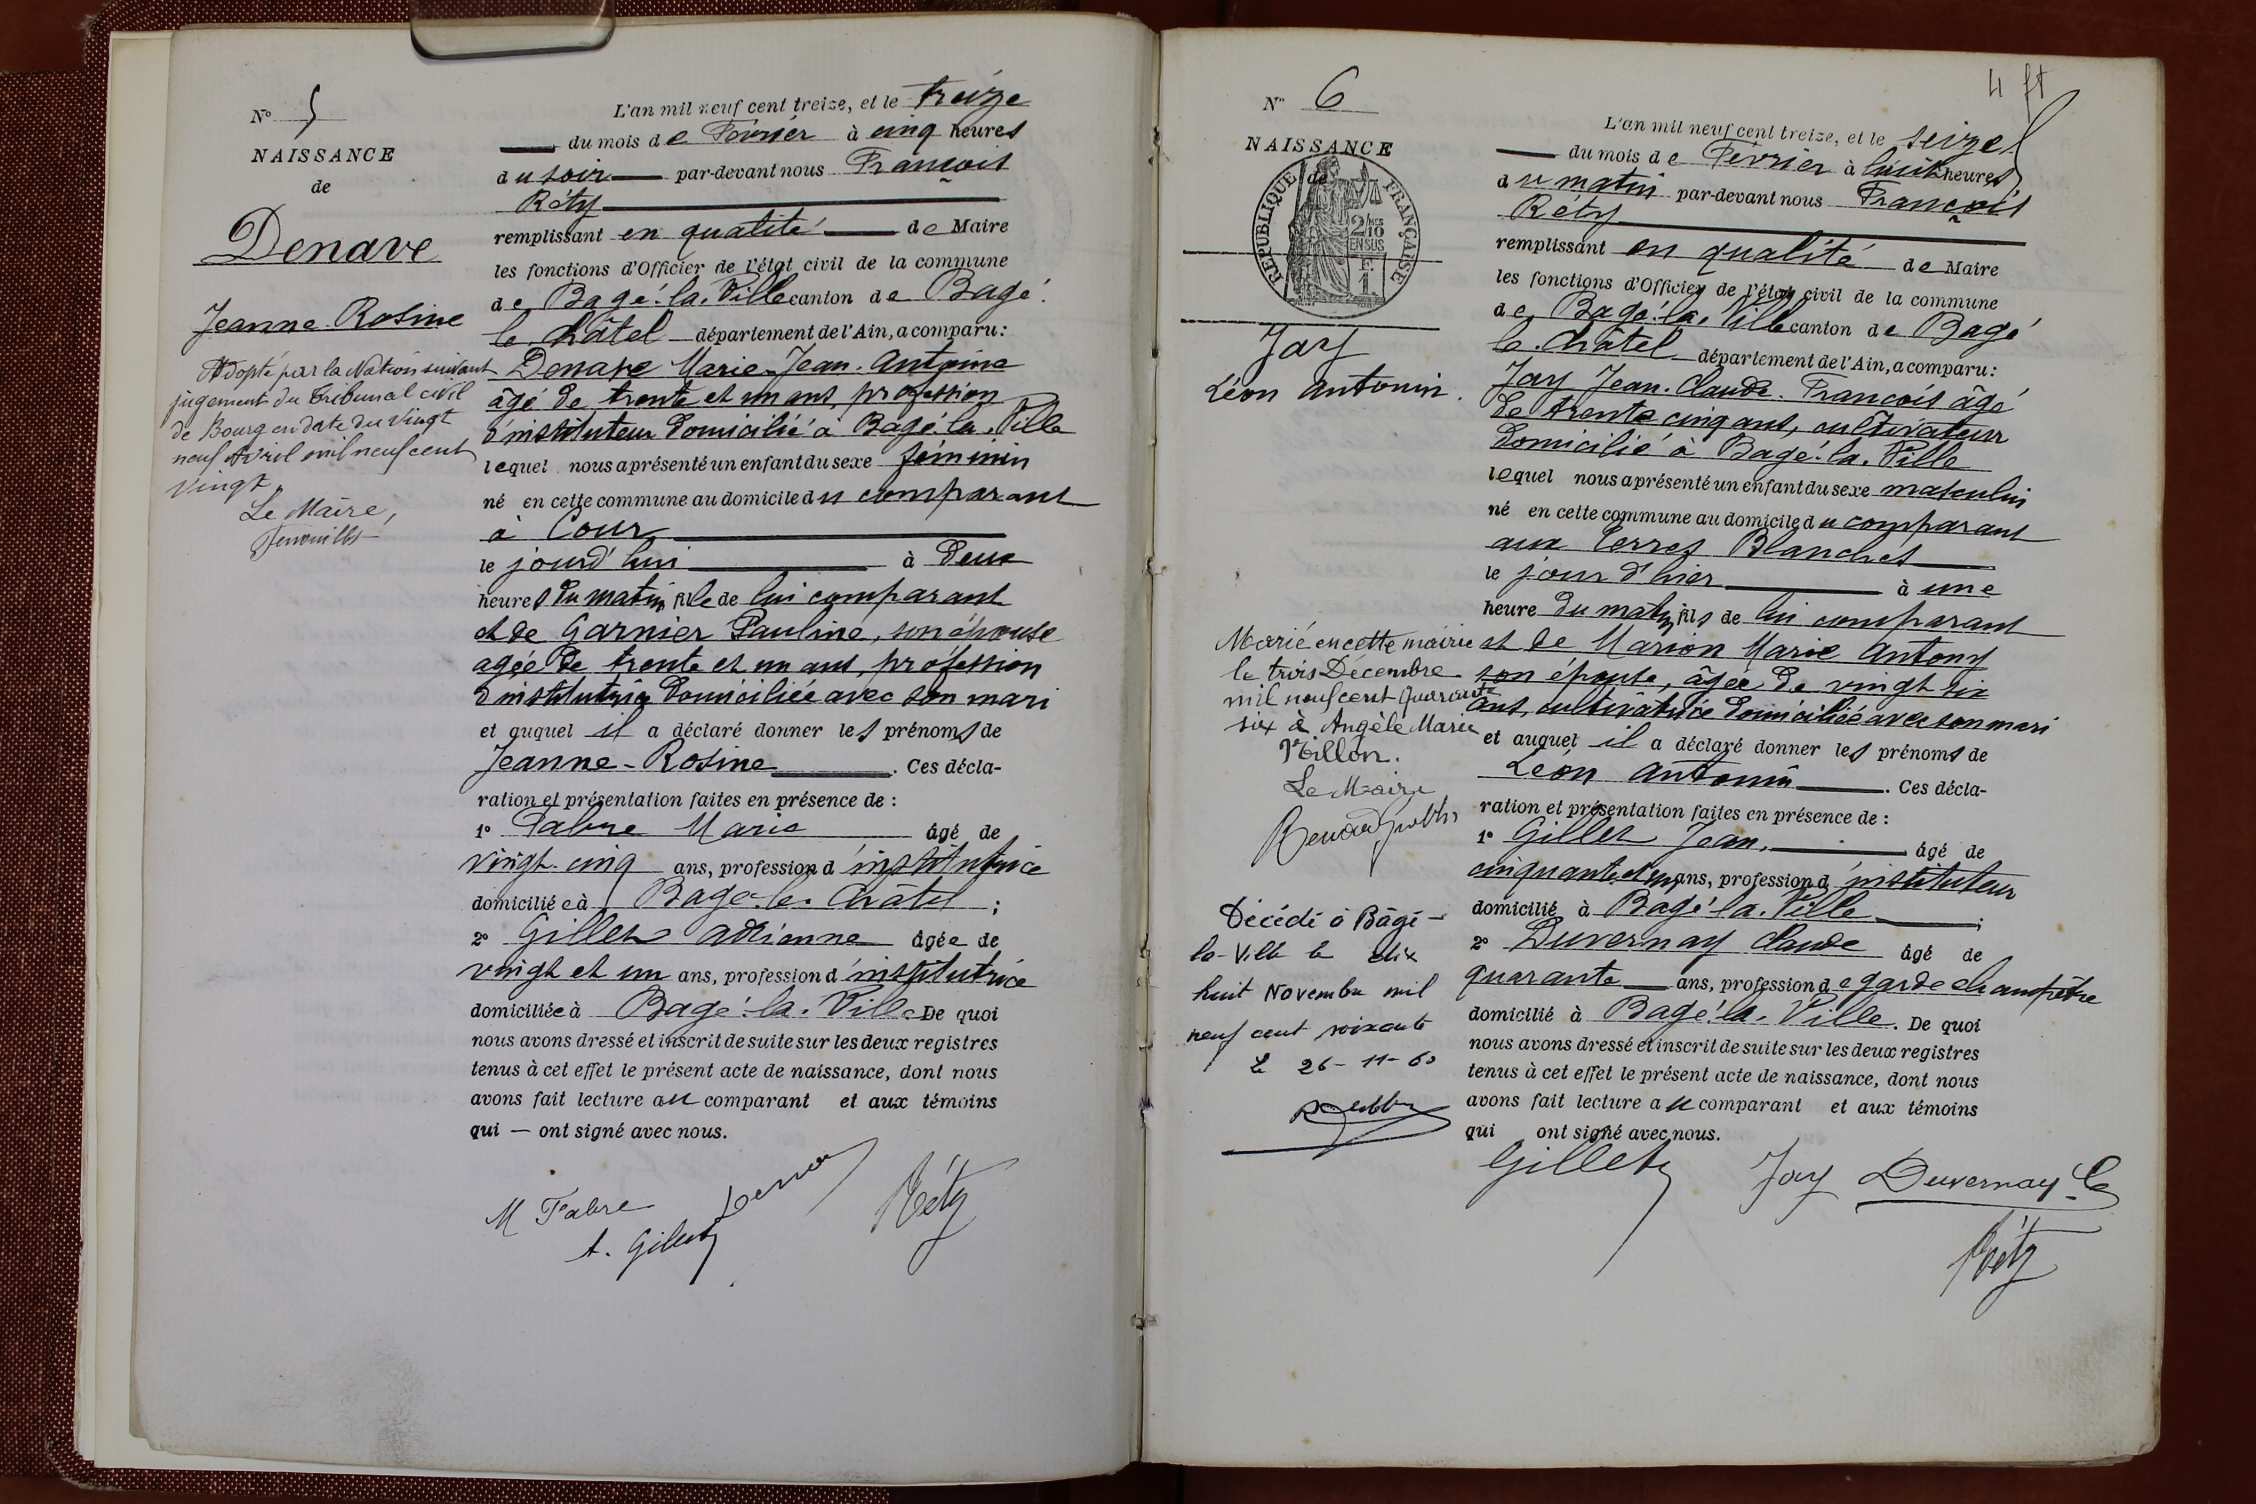 N° 5
NAISSANCE
de
Denave
Jeanne-Rosine
Adopté par la Nation suivant
jugement du Tribunal civil
de Bourg en date du vingt
neuf Avril mil neuf cent
vingt.
Le Maire,
L'an mil neuf cent treize, et le treize
du mois de Février à cinq heures
du soir par-devant nous François
Réty
remplissant en qualité de Maire
les fonctions d'Officier de l'état civil de la commune
de Bagé-la-Ville canton de Bagé-
le-Châtel département de l'Ain, a comparu:
Denave Marie-Jean-Antoine
âgé de trente et un ans, profession
d'instituteur domicilié à Bagé-la-Ville
lequel nous a présenté un enfant du sexe féminin
né en cette commune au domicile du comparant
à Cour
le jourd'hui à deux
heures du matin fille de lui comparant
et de Garnier Pauline, son épouse
agée de trente et un ans, profession
d'institutrice domiciliée avec son mari
et auquel il a déclaré donner les prénoms de
Jeanne-Rosine. Ces décla-
ration et présentation faites en présence de :
1° Fabre Marie âgé de
vingt-cinq ans, profession d'institutrice
domiciliée à Bagé-le-Châtel ;
2° Gillet Adrienne âgée de
vingt et un ans, profession d'institutrice
domiciliée à Bagé-la-Ville De quoi
nous avons dressé et inscrit de suite sur les deux registres
tenus à cet effet le présent acte de naissance, dont nous
avons fait lecture au comparant et aux témoins
qui — ont signé avec nous.
M Fabre
A. Gillet
Denave
Réty
4 ft
N° 6
NAISSANCE
de
REPUBLIQUE FRANÇAISE
2/10
EN SUS
F.
1
Jay
Léon Antonin.
Marié en cette mairie
le trois Décembre
mil neuf cent quarante
six à Angèle Marie
Le Maire
Décédé à Bâgé-
la-Ville le dix
huit Novembre mil
neuf cent soixante
Le 26-11-60
L'an mil neuf cent treize, et le seize
du mois de Février à huit heures
du matin par-devant nous François
Réty
remplissant en qualité de Maire
les fonctions d'Officier de l'état civil de la commune
de Bagé-la-Ville canton de Bagé
le-Châtel département de l'Ain, a comparu:
Jay Jean-Claude-François âgé
de trente cinq ans, cultivateur
domicilié à Bagé-la-Ville
lequel nous a présenté un enfant du sexe masculin
né en cette commune au domicile du comparant
aux Terres Blanches
le jour d'hier à une
heure du matin fils de lui comparant
et de Marion Marie Antony
son épouse, âgée de vingt six
ans, cultivatrice domiciliée avec son mari
et auquel il a déclaré donner les prénoms de
Léon Antonin. Ces décla-
ration et présentation faites en présence de :
1° Gillet Jean, âgé de
cinquante et un ans, profession d'instituteur
domicilié à Bagé-la-Ville ;
2° Duvernay Claude âgé de
quarante ans, profession de garde champêtre
domicilié à Bagé-la-Ville. De quoi
nous avons dressé et inscrit de suite sur les deux registres
tenus à cet effet le présent acte de naissance, dont nous
avons fait lecture au comparant et aux témoins
qui ont signé avec nous.
Gillet Jay Duvernay C
Réty